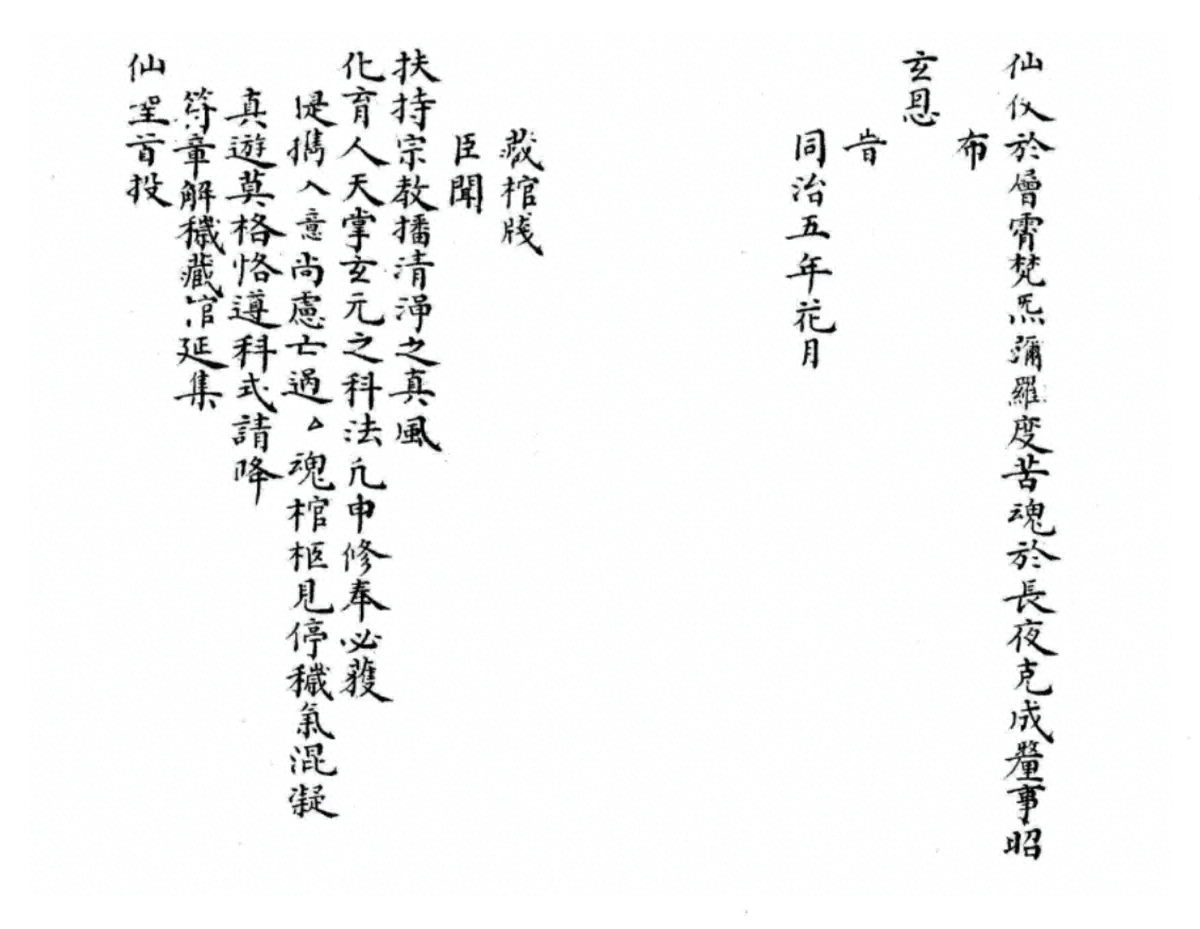 仙仪於層霄梵炁彌羅度苦魂於長夜克成釐事昭
布
玄恩
旹
同治五年花月
藏棺牋
臣聞
扶持宗教播清淨之真風
化育人天掌玄元之科法凢申修奉必獲
提攜入意尚慮亡過厶魂棺柩見停穢氣混凝
真遊莫格恪遵科式請降
符章解穢藏棺延集
仙聖首投